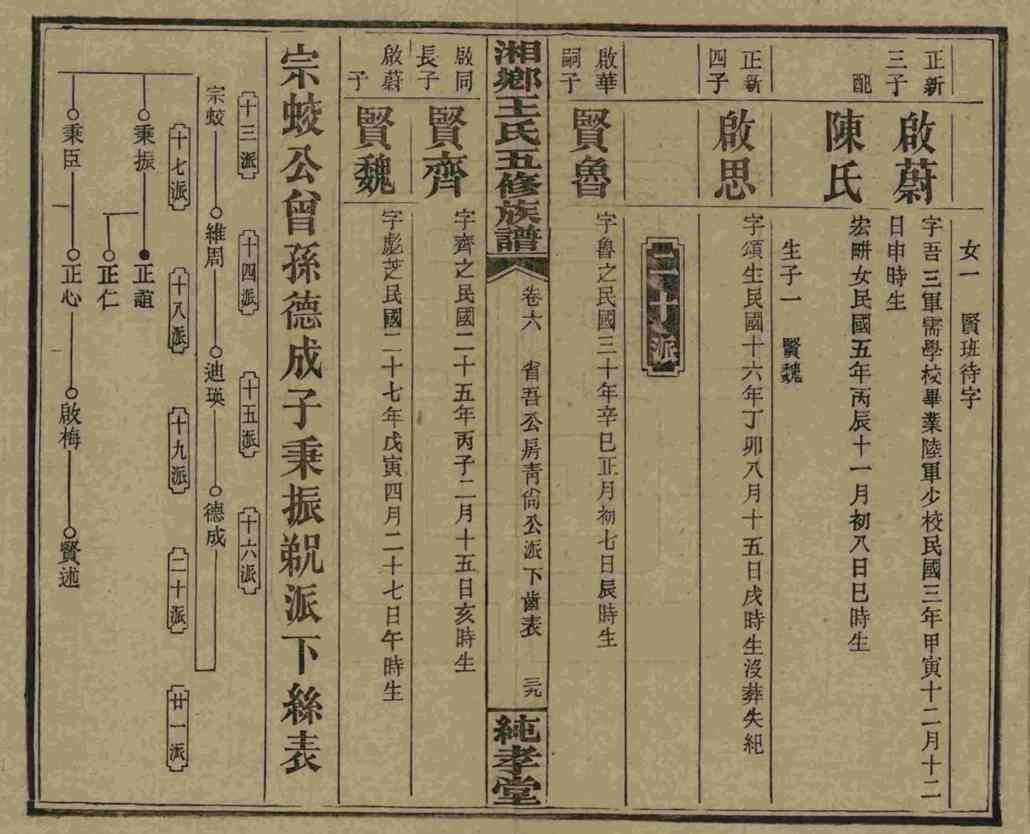 女一 賢班待字
正新三子
啟蔚
字吾三軍需學校畢業陸軍少校民國三年甲寅十二月十二
日申時生
配
陳氏
宏畊女民國五年丙辰十一月初八日巳時生
生子一 賢魏
正新四子
啟思
字頌生民國十六年丁卯八月十五日戌時生沒葬失紀
二十派
啟華嗣子
賢魯
字魯之民國三十年辛巳正月初七日辰時生
湘鄉王氏五修族譜
卷六 省吾公房靑尙公派下齒表 三九
純孝堂
啟同長子
賢齊
字齊之民國二十五年丙子二月十五日亥時生
啟蔚子
賢魏
字彪芝民國二十七年戊寅四月二十七日午時生
宗蛟公曾孫德成子秉振派下絲表
十三派 十四派 十五派 十六派
宗蛟 維周 迪瑛 德成
十七派 十八派 十九派 二十派 廿一派
秉振 正誼
正仁
秉臣 正心 啟梅 賢述